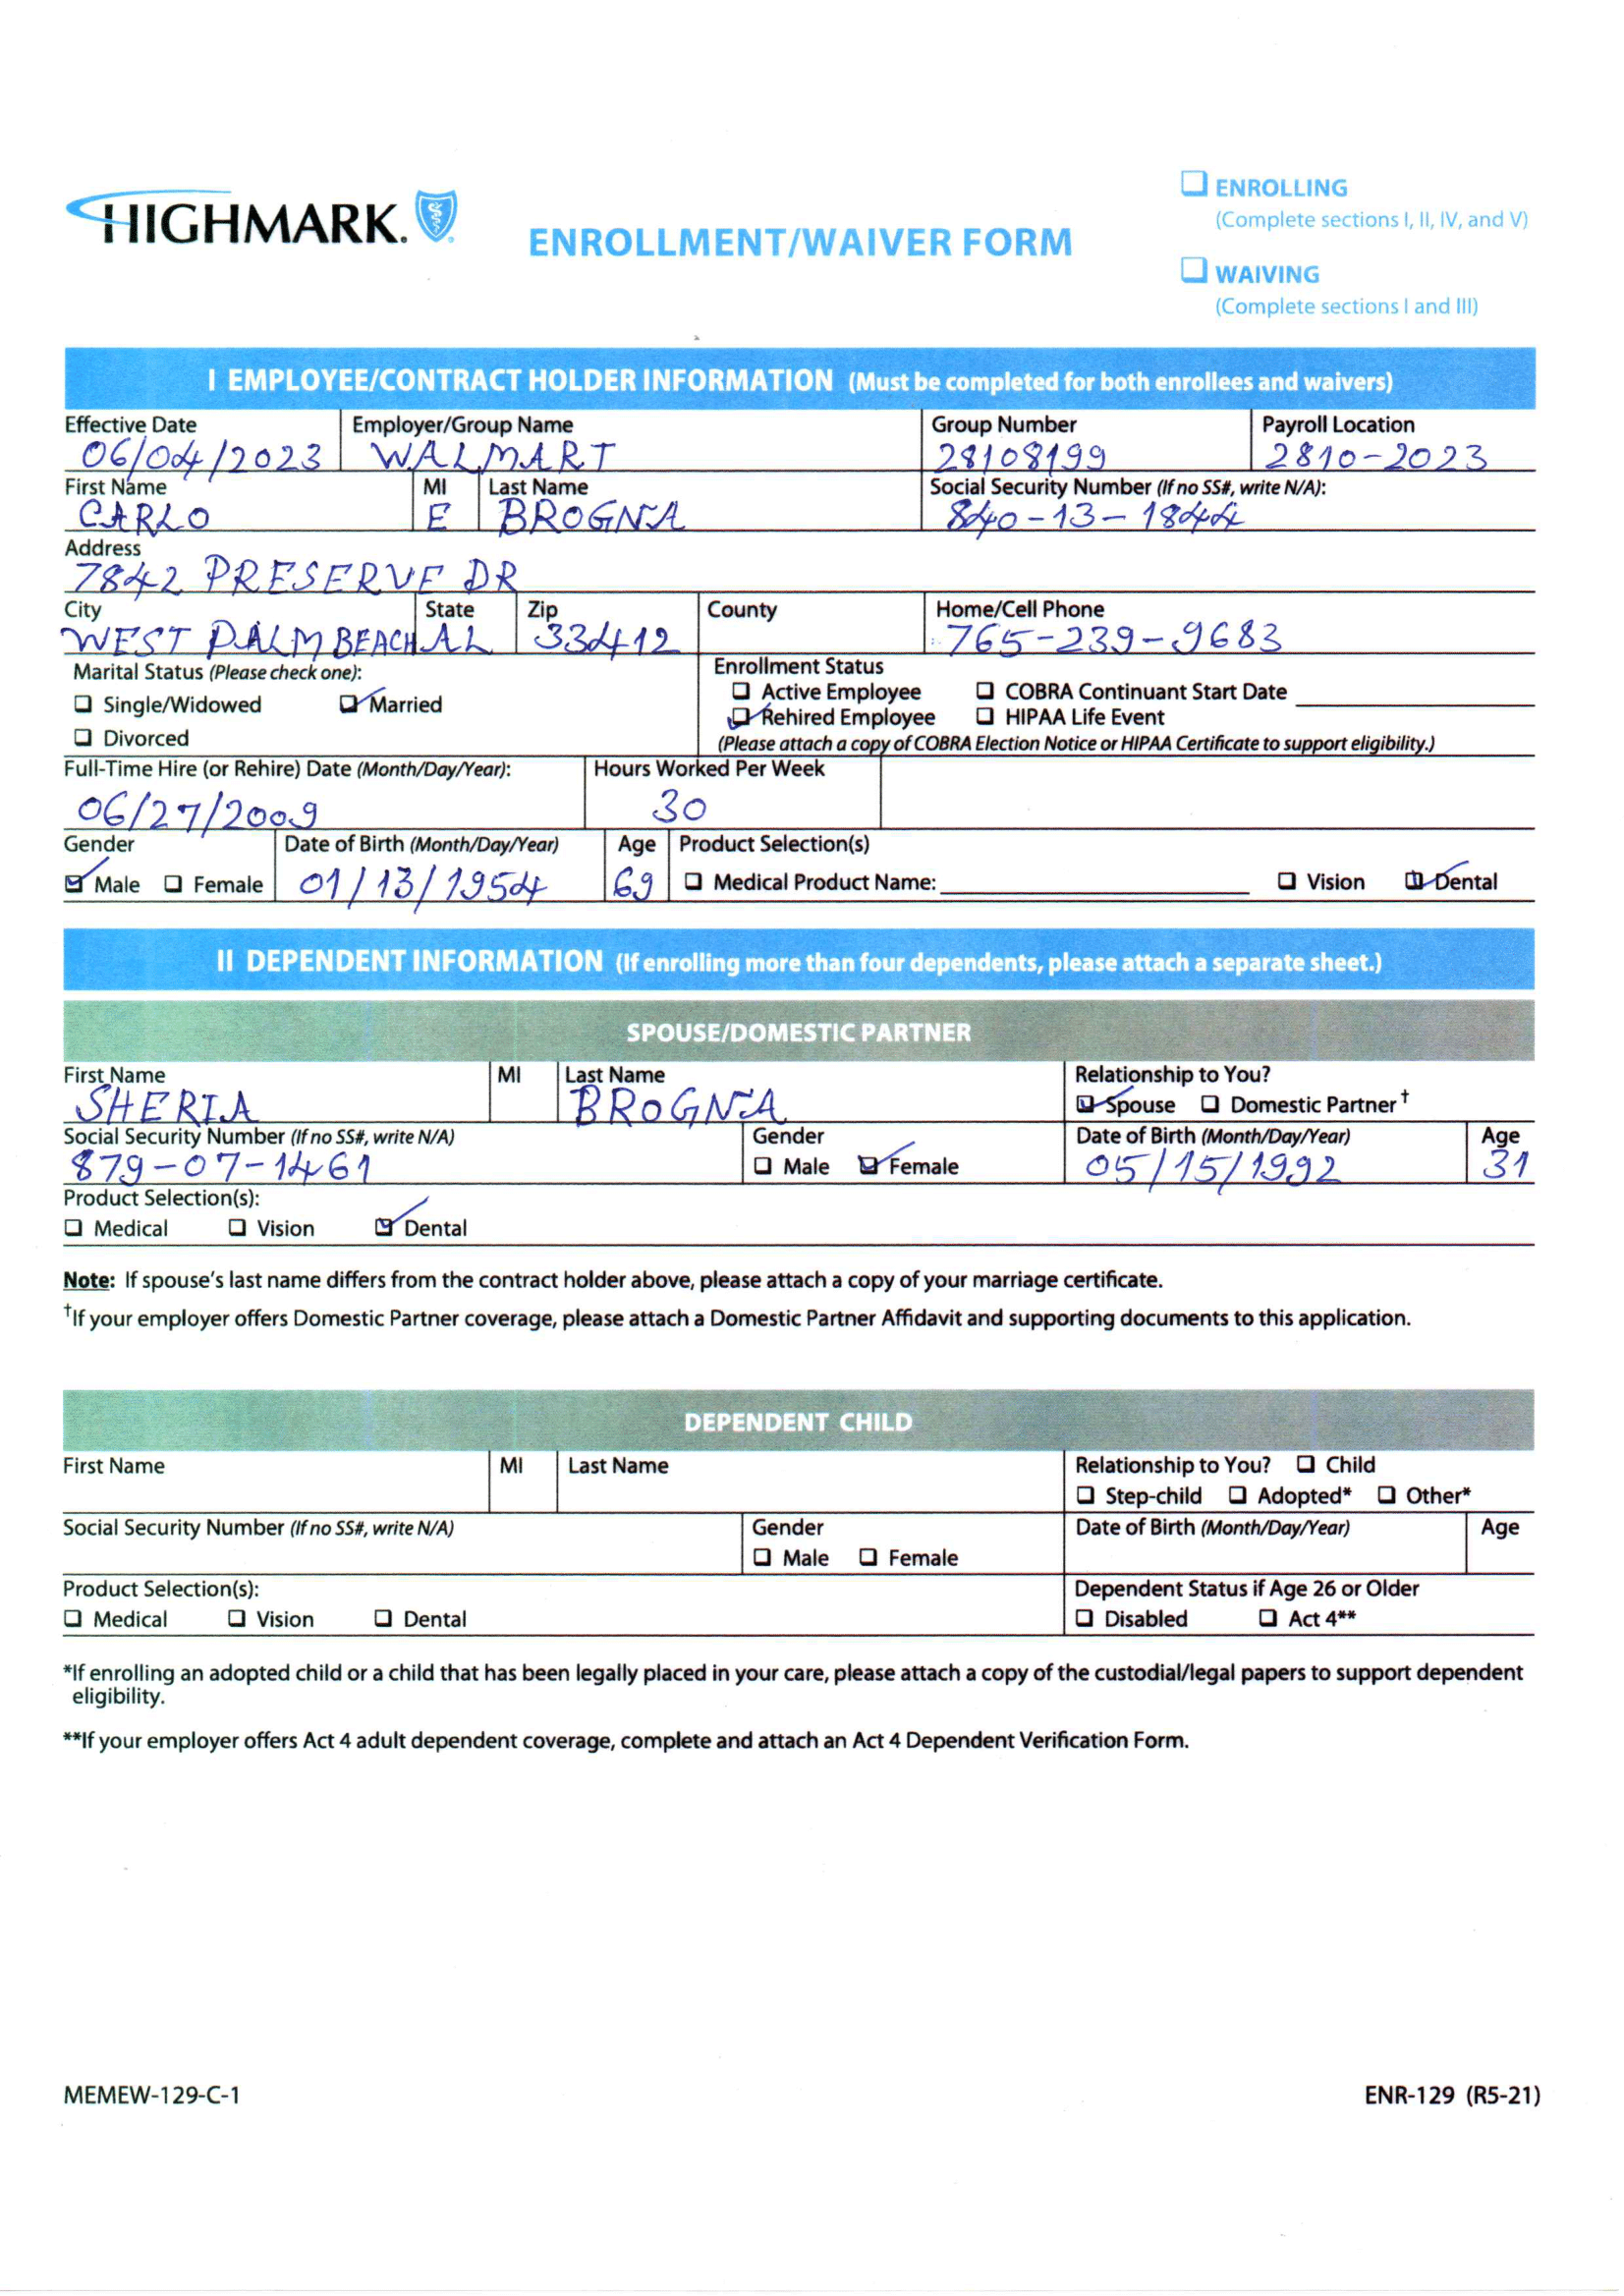 HIGHMARK.
ENROLLMENT/WAIVER FORM
❑ ENROLLING
(Complete sections I, II, IV, and V)
❑ WAIVING
(Complete sections I and III)
I EMPLOYEE/CONTRACT HOLDER INFORMATION (Must be completed for both enrollees and waivers)
Effective Date Employer/Group Name Group Number Payroll Location
06/04/2023 WALMART 28108199 2810-2023
First Name MI Last Name Social Security Number (If no SS#, write N/A):
CARLO E BROGNA 840-13-1844
Address
7842 PRESERVE DR
City State Zip County Home/Cell Phone
WEST PALM BEACH AL 33412 765-239-9683
Marital Status (Please check one): Enrollment Status
❑ Single/Widowed ☑ Married ❑ Active Employee ❑ COBRA Continuant Start Date
☑ Rehired Employee ❑ HIPAA Life Event
❑ Divorced (Please attach a copy of COBRA Election Notice or HIPAA Certificate to support eligibility.)
Full-Time Hire (or Rehire) Date (Month/Day/Year): Hours Worked Per Week
06/27/2009 30
Gender Date of Birth (Month/Day/Year) Age Product Selection(s)
☑ Male ❑ Female 01/13/1954 69 ❑ Medical Product Name: ❑ Vision ☑ Dental
II DEPENDENT INFORMATION (If enrolling more than four dependents, please attach a separate sheet.)
SPOUSE/DOMESTIC PARTNER
First Name MI Last Name Relationship to You?
SHERIA BROGNA ☑ Spouse ❑ Domestic Partner†
Social Security Number (If no SS#, write N/A) Gender Date of Birth (Month/Day/Year) Age
879-07-1461 ❑ Male ☑ Female 05/15/1992 31
Product Selection(s):
❑ Medical ❑ Vision ☑ Dental
Note: If spouse's last name differs from the contract holder above, please attach a copy of your marriage certificate.
†If your employer offers Domestic Partner coverage, please attach a Domestic Partner Affidavit and supporting documents to this application.
DEPENDENT CHILD
First Name MI Last Name Relationship to You? ❑ Child
❑ Step-child ❑ Adopted* ❑ Other*
Social Security Number (If no SS#, write N/A) Gender Date of Birth (Month/Day/Year) Age
❑ Male ❑ Female
Product Selection(s): Dependent Status if Age 26 or Older
❑ Medical ❑ Vision ❑ Dental ❑ Disabled ❑ Act 4**
*If enrolling an adopted child or a child that has been legally placed in your care, please attach a copy of the custodial/legal papers to support dependent
eligibility.
**If your employer offers Act 4 adult dependent coverage, complete and attach an Act 4 Dependent Verification Form.
MEMEW-129-C-1 ENR-129 (R5-21)